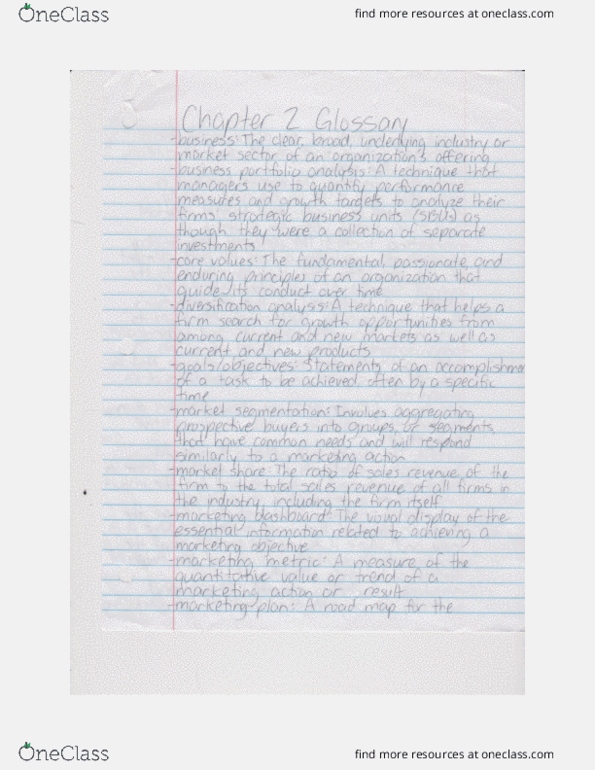 OneClass
find more resources at oneclass.com
Chapter 2 Glossary
-business: The clear, broad, underlying industry or
market sector of an organization's offering
-business portfolio analysis: A technique that
managers use to quantify performance
measures and growth targets to analyze their
firms' strategic business units (SBUs) as
though they were a collection of separate
investments
-core values: The fundamental, passionate, and
enduring principles of an organization that
guide its conduct over time
-diversification analysis: A technique that helps a
firm search for growth opportunities from
among current and new markets as well as
current and new products
-goals/objectives: Statements of an accomplishm
of a task to be achieved, often by a specific
time
-market segmentation: Involves aggregating
prospective buyers into groups, or segments,
that have common needs and will respond
similarly to a marketing action
-market share: The ratio of sales revenue of the
firm to the total sales revenue of all firms in
the industry, including the firm itself
-marketing dashboard: The visual display of the
essential information related to achieving a
marketing objective
-marketing metric: A measure of the
quantitative value or trend of a
marketing action or result
-marketing plan: A road map for the
OneClass
find more resources at oneclass.com